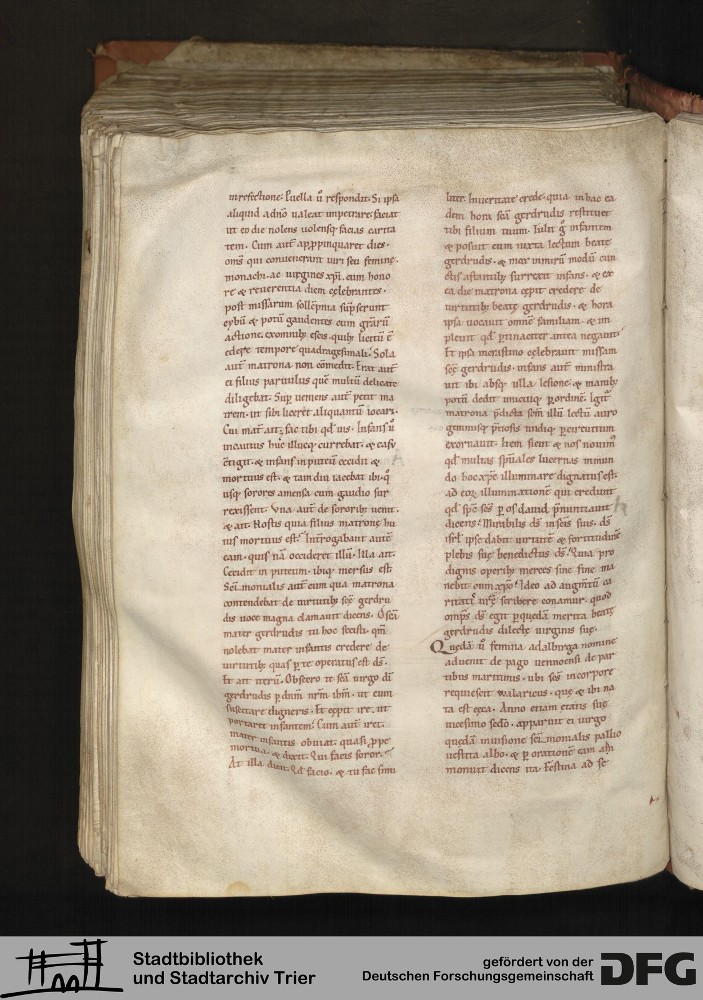 in refectione. Puella ů respondit. Si ipsa
aliquid adño ualeat impetrare. faciat
ut eo die nolens uolensq; facias carita
tem. Cum aut̄ appropinquaret dies.
om̄s qui conuenerant uiri seu femine.
monachi. ac uirgines xp̄i. cum hono
re & reuerentia diem celebrantes.
post missarum sollēpnia sūpserunt
cybū & potū gaudentes cum gr̄arū
actione. ex omnib; escis. quib; licitū ē
edere tempore quadragesimali. Sola
aut̄ matrona non comedit. Erat aut̄
ei filius paruulus quē multū delicate
diligebat. Supueniens aut̄ petit ma
trem. ut sibi liceret aliquantū iocari.
Cui mat̄ ait; fac tibi qd̄ uis. Infans ů
incautus huc illucq; currebat. & casu
ctigit. & infans in puteū cecidit &
mortuus est. & tam diu iacebat ibi. q̊
usq; sorores a mensa cum gaudio sur
rexissent. Vna aut̄ de sororib; uenit.
& ait. Nostis quia filius matrone hu
ius mortuus est. Interrogabant autē
eam. quis nā occideret illū. Illa ait.
Cecidit in puteum. ibiq; mersus est.
Sc̄i monialis aut̄ cum qua matrona
contendebat de uirtutib; sc̄ę gerdru
dis uoce magna clamauit dicens. O sc̄a
mater gerdrudis tu hoc fecisti. qm̄
nolebat mater infantis credere de
uirtutib; quas p te operatus est d̄s.
Et ait iterū. Obsecro te sc̄a uirgo dī
gerdrudis p dn̄m nr̄m ihm̄. ut eum
suscitare digneris. Et cepit ire. ut
portaret infantem. Cum aut̄ iret.
mater infantis obuiat. quasi ppe
mortua. & dixit. Qui facis soror.
At illa dixit. Qd̄ facio. & tu fac simi
liter. In ueritate crede. quia in hac ea
dem hora sc̄a gerdrudis restituet
tibi filium tuum. Tulit g̊ infantem
& posuit eum iuxta lectum beatę
gerdrudis. & mox mirum in modū cun
ctis astantib; surrexit infans. & ex
ea die matrona cepit credere de
uirtutib; beatę gerdrudis. & hora
ipsa uocauit omnē familiam. & im
pleuit qd̄ ptinaciter antea negauit.
Et ipsa in crastino celebrauit missam
sc̄ę gerdrudis. infans aut̄ ministra
uit ibi absq; ulla lesione. & manib;
potū dedit unicuiq; p ordinē. Igit̄
matrona p̄dicta sem̄ illū lectū auro
gemmisq; p̄ciosis undiq; p circuitum
exornauit. Item sicut & nos nouim̊
qd̄ multas sp̄uales lucernas in mun
do hoc xp̄c illuminare dignatus est.
ad eoȝ illuminationē qui credunt
qd̄ sp̄c sc̄s p os dauid p̄nuntiauit
dicens. Mirabilis d̄s in sc̄is suis. d̄s
isrl̄ ipse dabit uirtutē & fortitudinē
plebis suę benedictus d̄s. Quia pro
dignis operib; merces sine fine ma
nebit cum xp̄o. Ideo ad augm̄tū ca
ritatis urę scribere conamur. quod
omp̄s d̄s egit p quedā merita beatę
gerdrudis dilectę uirginis suę.
Quedā ů femina adalburga nomine
aduenit de pago uennoensi de par
tibus maritimis. ubi sc̄s in corpore
requiescit walaricus. quę & ibi na
ta est ceca. Anno etiam etatis suę
uicesimo sc̄do. apparuit ei uirgo
quedā in uisione sc̄i monialis pallio
uestita albo. & p orationē eam am
monuit dicens ita. Festina ad se
Stadtbibliothek
und Stadtarchiv Trier
gefördert von der
Deutschen Forschungsgemeinschaft
DFG